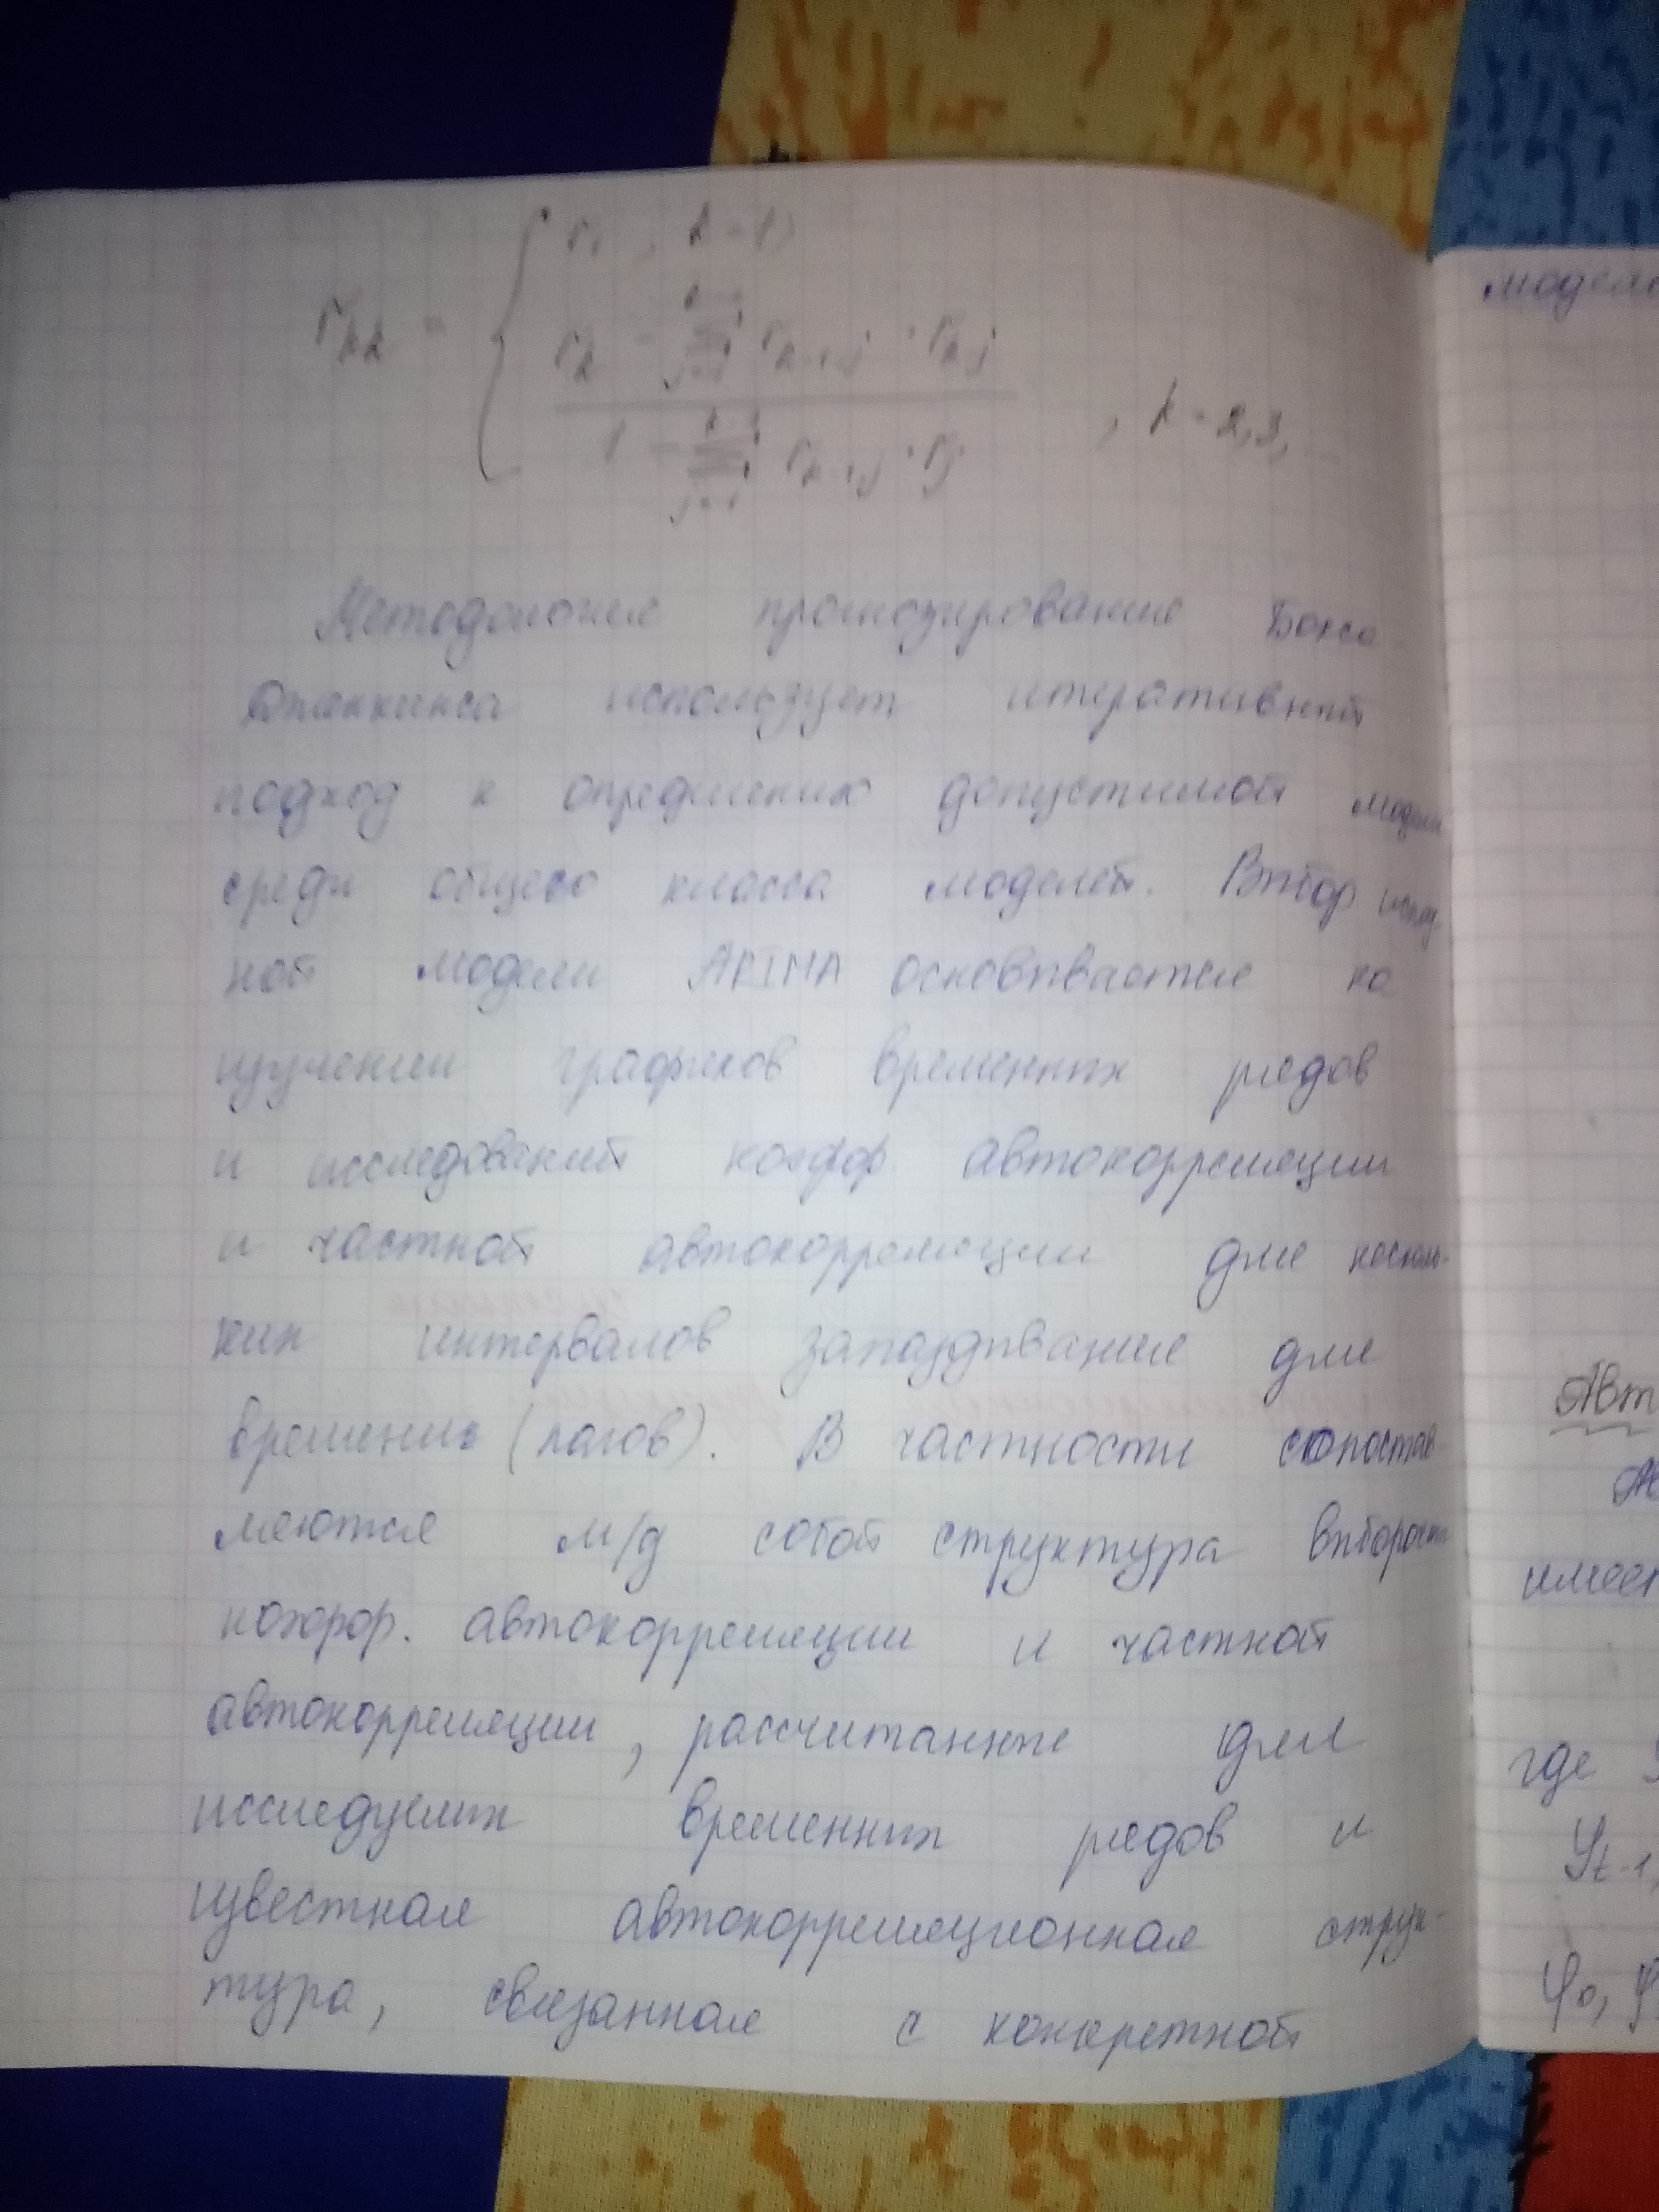 r_kk = { r_1, k=1;
r_k - Σ_{j=1}^{k-1} r_{k-1,j} · r_{k-j}
1 - Σ_{j=1}^{k-1} r_{k-1,j} · r_j , k = 2,3,...
Методология прогнозирования Бокса-
Дженкинса использует итеративный
подход к определению допустимой модели
среди общего класса моделей. Выбор исход-
ной модели ARIMA основывается на
изучении графиков временных рядов
и исследований коэфф. автокорреляции
и частной автокорреляции для несколь-
ких интервалов запаздывания для
времени (лагов). В частности сопостав-
ляются м/д собой структура выборочн
коэфф. автокорреляции и частной
автокорреляции, рассчитанные для
исследуемых временных рядов и
известная автокорреляционная струк-
тура, связанная с конкретной
Авт
имеет
где
y_{t-1},
φ_0, φ